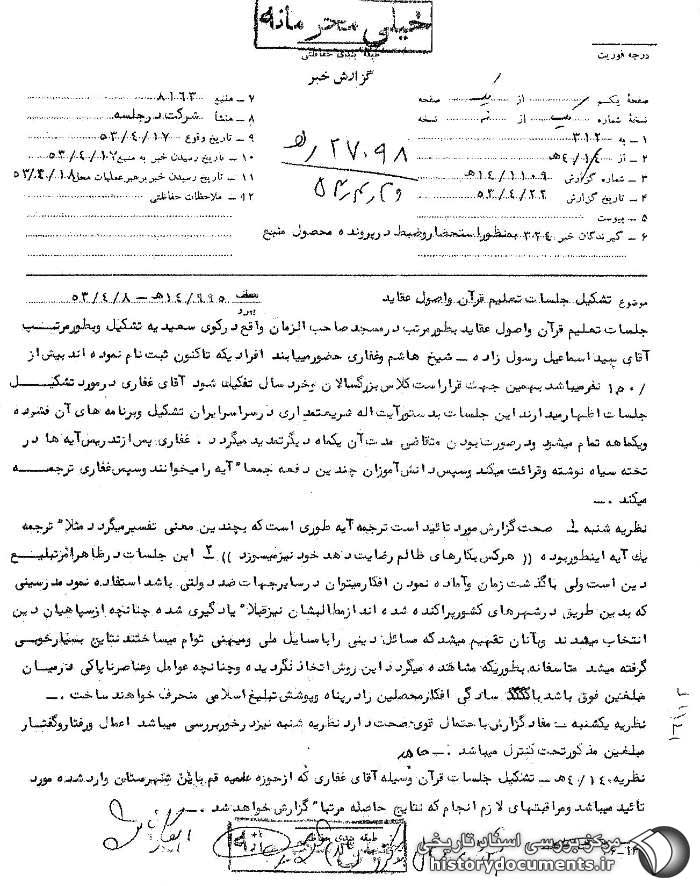 خیلی محرمانه
طبقه بندی حفاظتی
درجه فوریت
گزارش خبر
صفحه یکم یک از یک صفحه
نسخه شماره یک از نسخه
۱ – به ۳۱۲
۲ – از ۴/۱۴هـ
۳ – شماره گزارش ۱۴/۱۱۰۹هـ
۴ – تاریخ گزارش ۵۳/۴/۲۲
۵ – پیوست
۶ – گیرندگان خبر ۳۲۴ بمنظور استحضار وضبط در پرونده محصول منبع
۷ – منبع ۸۱۶۳
۸ – منشأ شرکت در جلسه
۹ – تاریخ وقوع ۵۳/۴/۱۷
۱۰ – تاریخ رسیدن خبر به منبع ۵۳/۴/۱۷
۱۱ – تاریخ رسیدن خبر برهبر عملیات محل ۵۳/۴/۱۸
۱۲ – ملاحظات حفاظتی
۲۷۰۹۸
موضوع تشکیل جلسات تعلیم قرآن واصول عقاید
پیرو ۱۴/۹۹۵هـ – ۵۳/۴/۸
جلسات تعلیم قرآن واصول عقاید بطور مرتب در مسجد صاحب الزمان واقع در کوی سعیدیه تشکیل وبطور مرتب
آقای سید اسماعیل رسول زاده – شیخ هاشم وغفاری حضور مییابند افرادیکه تاکنون ثبت نام نموده اند بیش از
۱۵۰ نفر میباشد بهمین جهت قرار است کلاس بزرگسالان وخرد سال تفکیک شود آقای غفاری در مورد تشکیل
جلسات اظهار میدارند این جلسات بدستور آیت اله شریعتمداری در سراسر ایران تشکیل وبرنامه های آن فشرده
ویکماهه تمام میشود ودرصورت بودن متقاضی مدت آن یکماه دیگر تمدید میگردد . غفاری پس از تدریس آیه ها در
تخته سیاه نوشته وقرائت میکند وسپس دانش آموزان چندین دفعه جمعا" آیه را میخوانند وسپس غفاری ترجمه
میکند . –
نظریه شنبه ۱ صحت گزارش مورد تائید است ترجمه آیه طوری است که بچندین معنی تفسیر میگردد مثلا" ترجمه
یک آیه اینطور بوده (( هر کس بکارهای ظالم رضایت دهد خود نیز میسوزد )) ۲ این جلسات در ظاهر امر تبلیغ
دین است ولی با گذشت زمان وآماده نمودن افکار میتوان در سایر جهات ضد دولتی باشد استفاده نمود مدرسینی
که بدین طریق در شهرهای کشور پراکنده شده اند از مطالبشان نیز قبلا" یادگیری شده چنانچه از سپاهیان دین
انتخاب میشدند وبآنان تفهیم میشد که مسائل دینی را با مسایل ملی ومیهنی توام میساختند نتایج بسیار خوبی
گرفته میشد متاسفانه بطوریکه مشاهده میگردد این روش اتخاذ نگردیده وچنانچه عوامل وعناصر ناپاکی در میان
مبلغین فوق باشد با سادگی افکار محصلین را در پناه وپوشش تبلیغ اسلامی منحرف خواهند ساخت . –
نظریه یکشنبه – مفاد گزارش باحتمال قوی صحت دارد نظریه شنبه نیز در خور بررسی میباشد اعمال ورفتار وگفتار
مبلغین مذکور تحت کنترل میباشد . –
نظریه ۴/۱۴هـ – تشکیل جلسات قرآن وسیله آقای غفاری که از حوزه علمیه قم باین شهرستان وارد شده مورد
تأئید میباشد ومراقبتهای لازم انجام که نتایج حاصله مرتبا" گزارش خواهد شد . –
طبقه بندی حفاظتی
مرکز بررسی اسناد تاریخی
historydocuments.ir